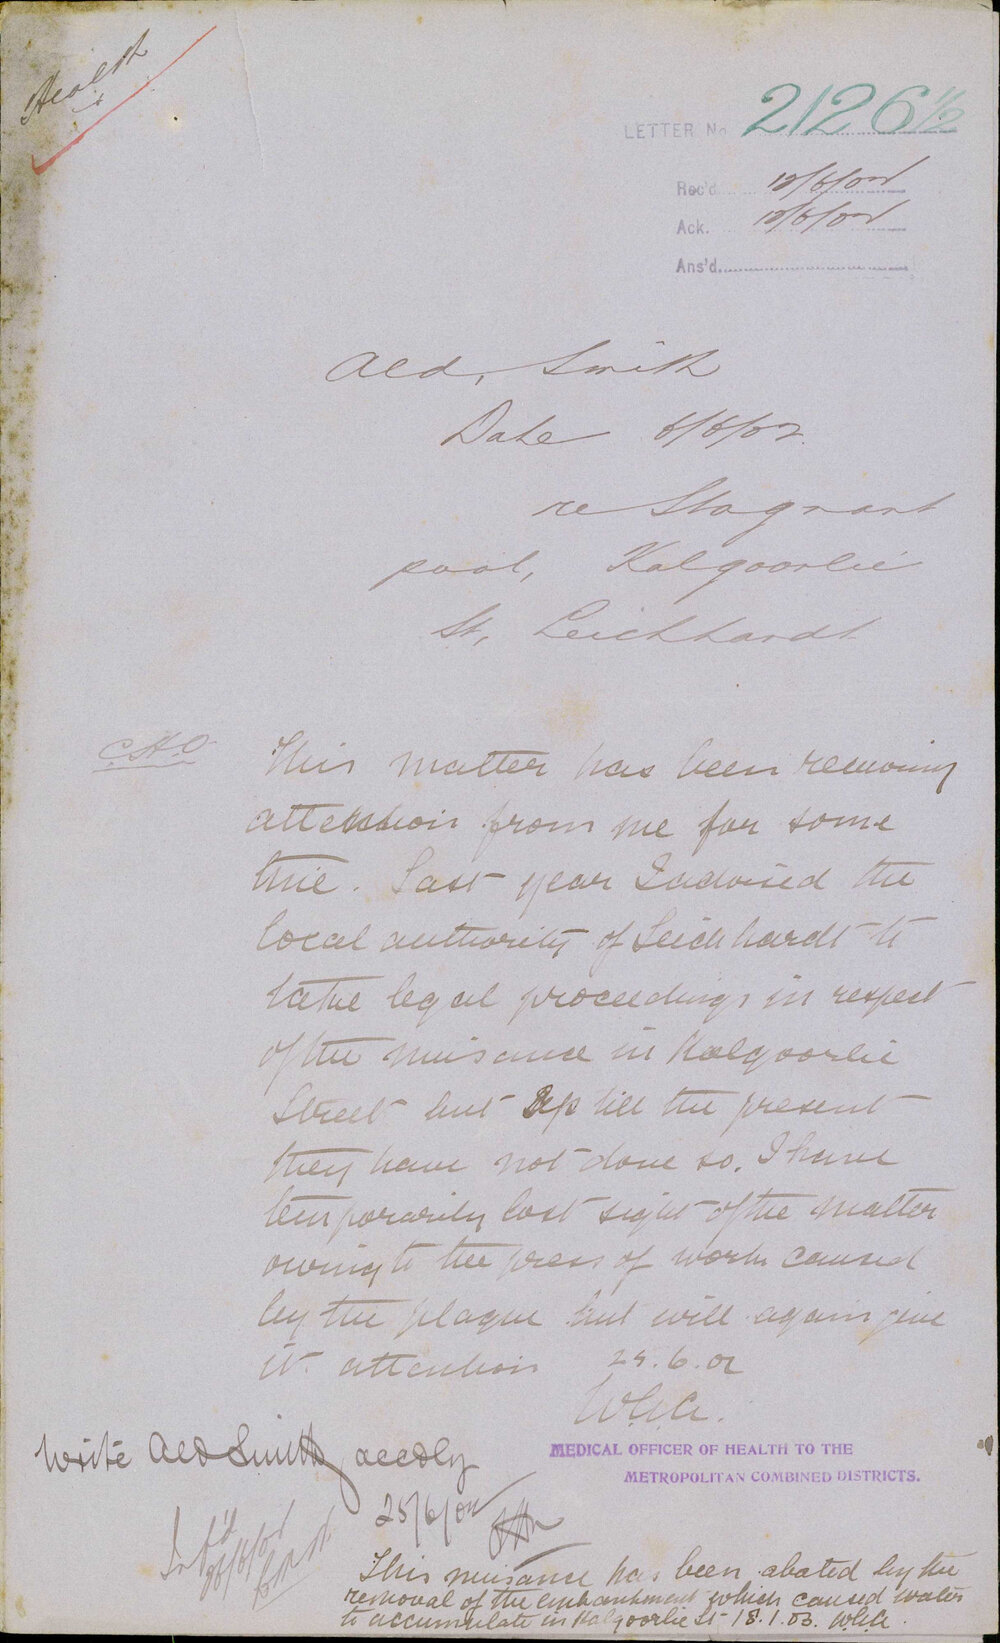 Health
LETTER No 2126 1/2
Rec'd 12/6/02
Ack. 12/6/02
Ans'd
Ald, Smith
Date 6/6/02.
re Stagnant
pool, Kalgoorlie
St, Leichhardt
C.H.O
This matter has been receiving
attention from me for some
time. Last year I advised the
local authority of Leichhardt to
take legal proceedings in respect
of the nuisance in Kalgoorlie
Street but up till the present
they have not done so. I have
temporarily lost sight of the matter
owing to the press of work caused
by the plague but will again give
it attention 24.6.02
W.G.A.
MEDICAL OFFICER OF HEALTH TO THE
METROPOLITAN COMBINED DISTRICTS.
Write Ald Smith accdly
25/6/02
Inf'd
26/6/02
This nuisance has been abated by the
removal of the embankment which caused water
to accumulate in Kalgoorlie St 18.1.03. W.G.A.